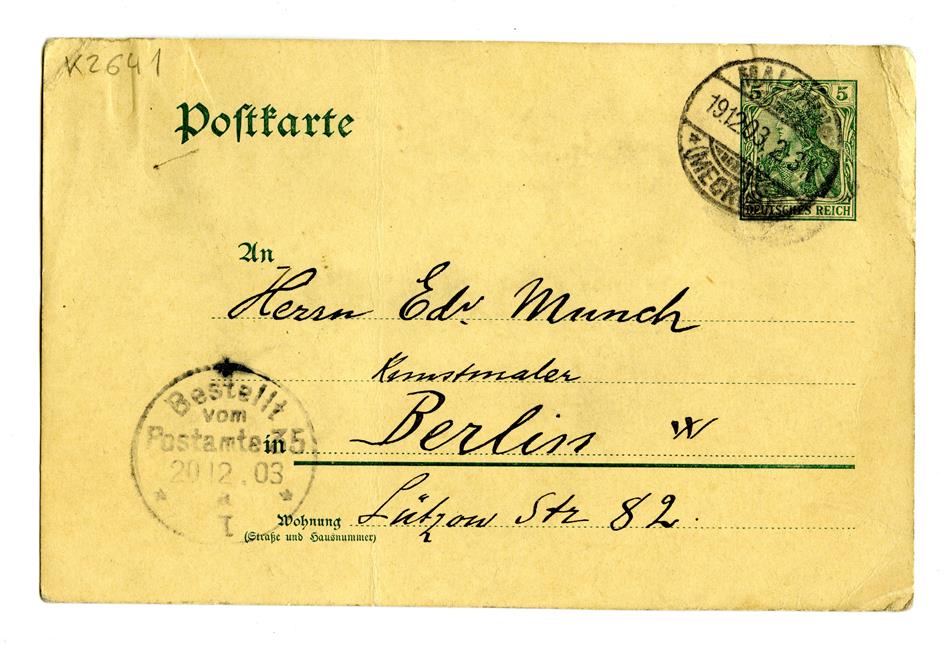 K2641
Postkarte
5 5
19 12 03 2-3N
* (MECKL
DEUTSCHES REICH
An
Herrn Edv. Munch
Kunstmaler
in Berlin W
Bestellt
vom
Postamte 35
20 12. 03
1
Wohnung Lützow Str 82.
(Straße und Hausnummer)